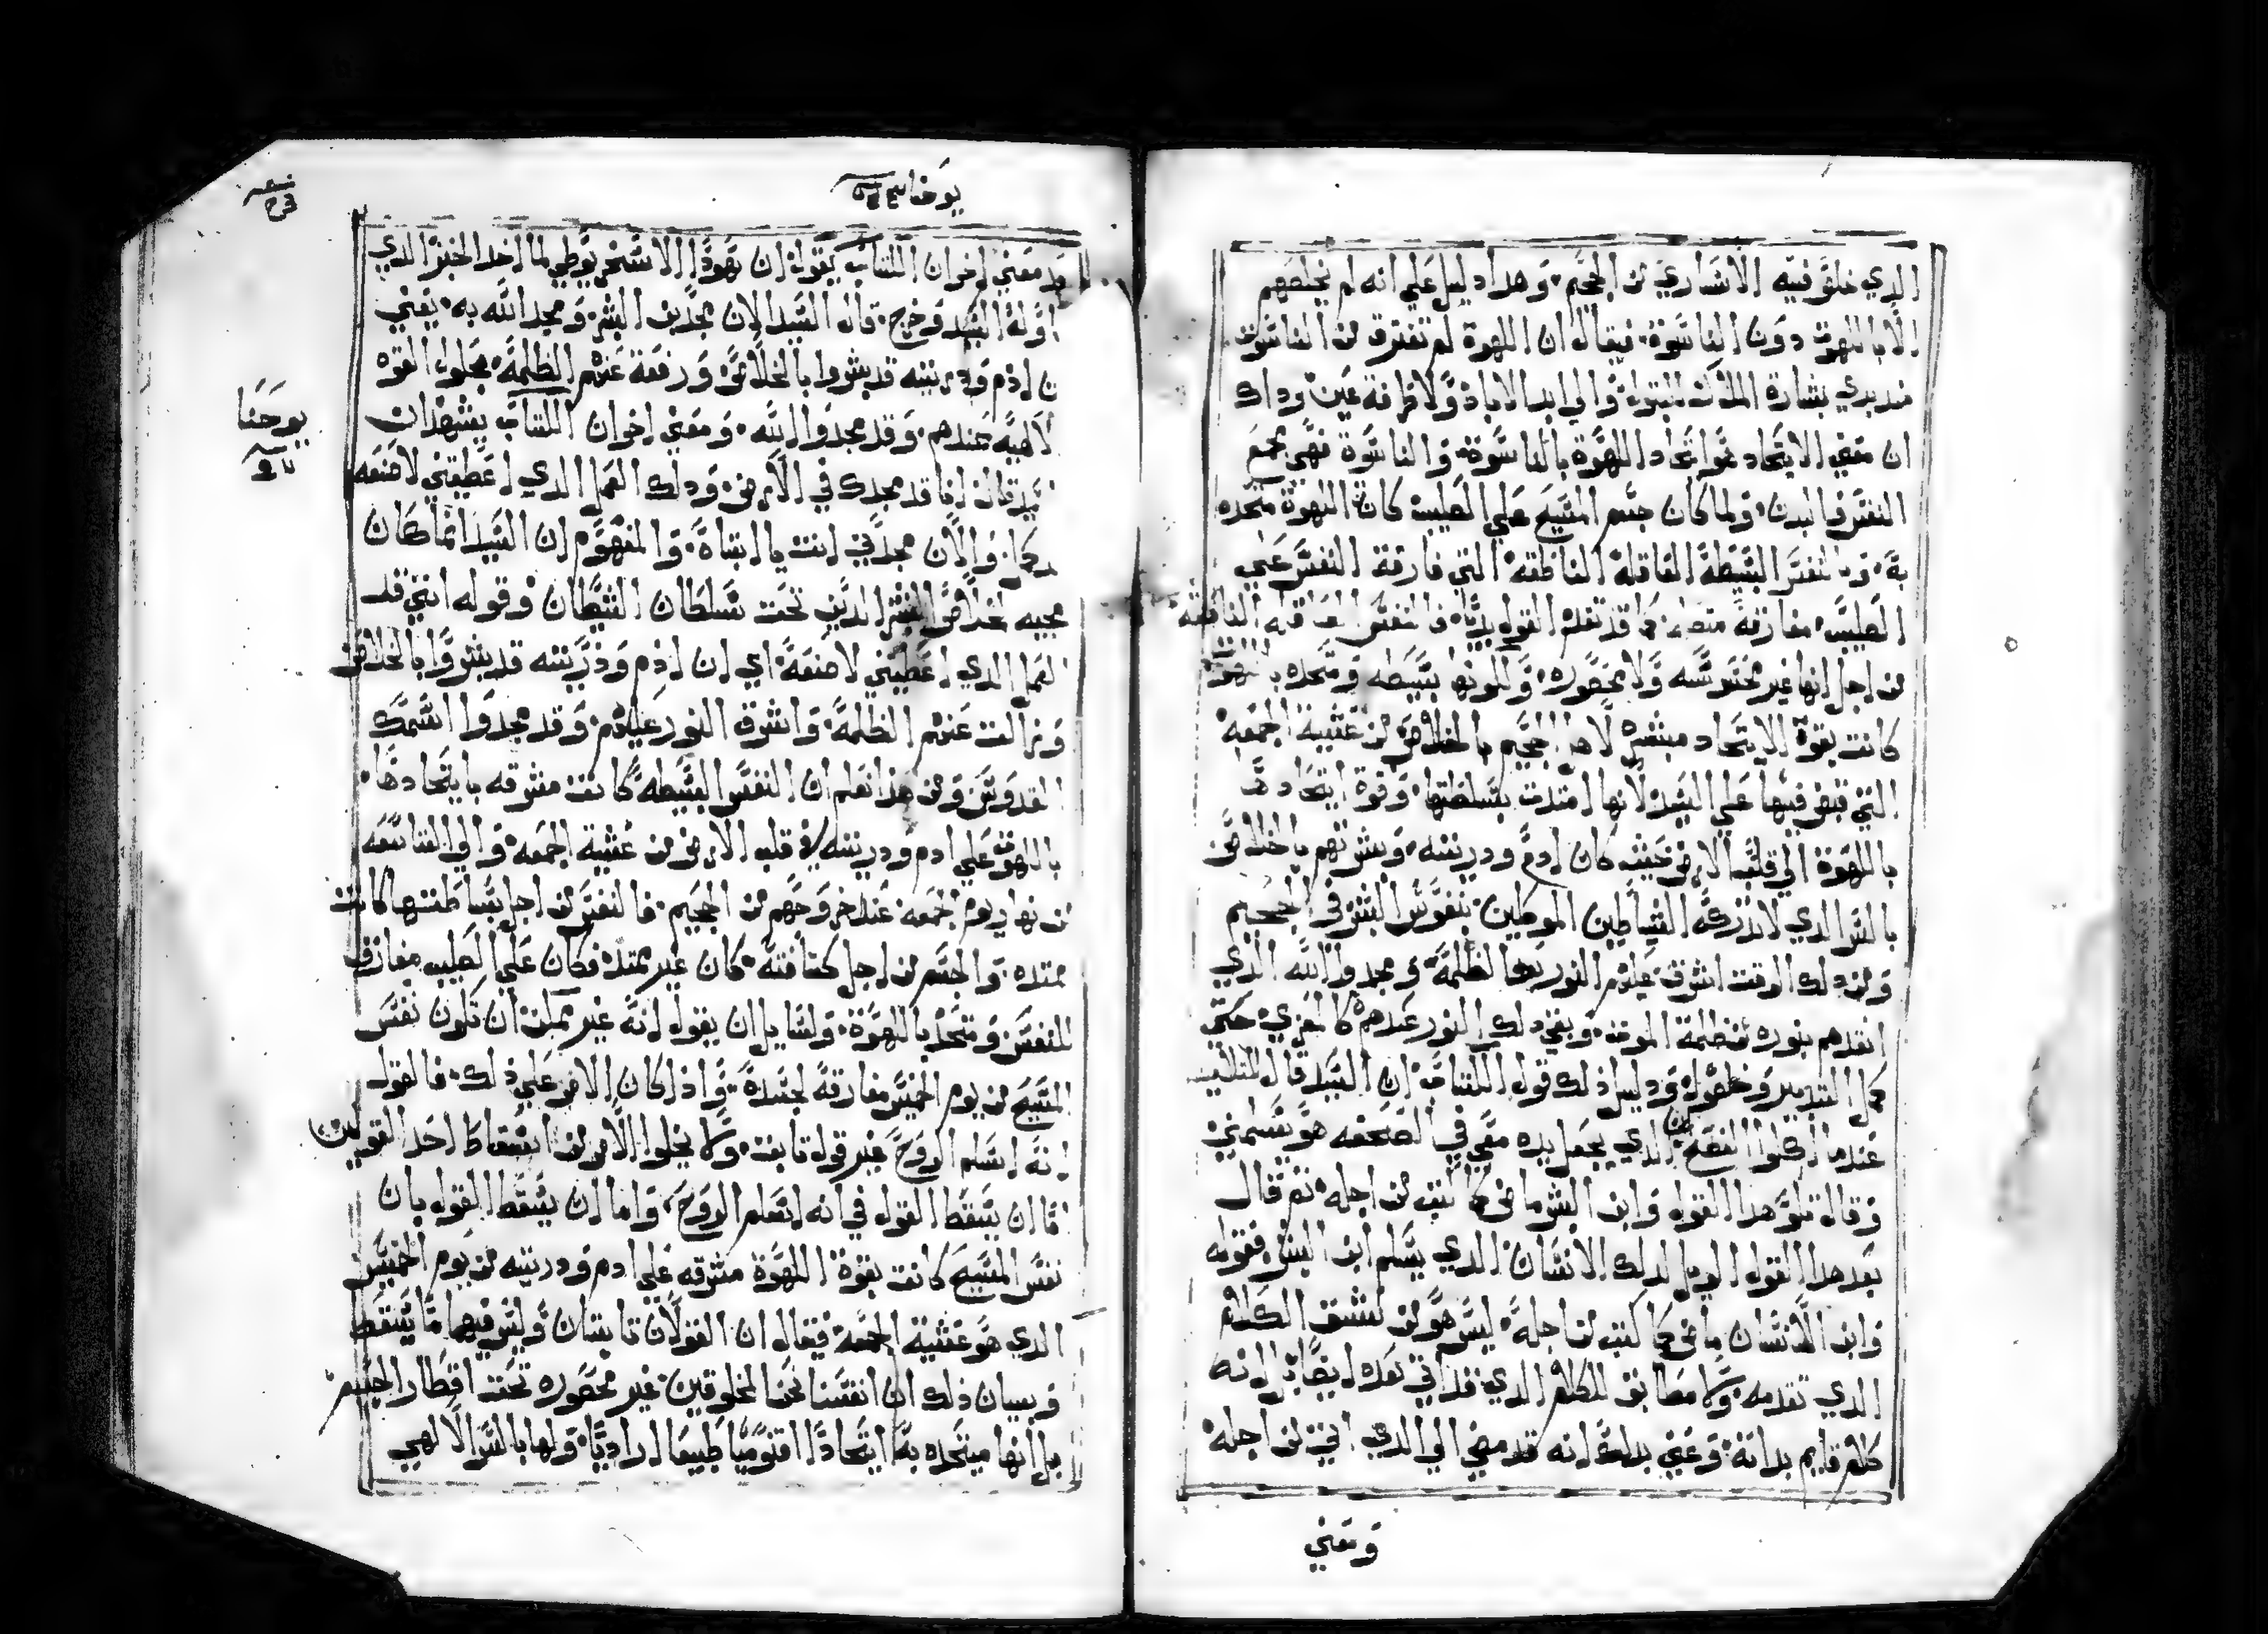 الدي خلق فيه الاشاري من الجحيم. وهدا دليل علي انه لم يخلصهم
الا باللهوة دون الناسوة. فيقال ان اللهوة لم تفترق من الناسوت
مند بدي بشارة الملاك للبتول والي ابد الاباد ولا طرفة عين وداك
ان معني الايتحاد هوا يتحاد اللهوة بالناسوة. والناسوة فهي تجمع
النفس والبدن. ولما كان جسم المسيح علي الصليب كانة اللهوة متحده
به. وبالنفس البسيطة العاقلة الناطقة التي فارقة النفس علي
الصليب. مفارقة كما قد تقدم القول بديا. فالنفس العاقله الناطقه
من اجل انها غير محسوسه ولا محصوره. وللونها بسيطه ومتحده باللهوة
كانت بقوة الايتحاد مبشره لاهل الجحيم بالخلاص من عشية الجمعه
التي قبض فيها علي السيد لانها امتدت بسلطتها. وقوة ايتحادها
باللهوة الي قلب الارض حيث كان ادم ودريته. وبشرتهم بالخلاص
بالسر الدي لاتدركه الشياطين الموكلين بنفوس البشر في الجحيم
ومن دلك الوقت اشرق عليهم النور بعد الظلمة. ومجدوا الله الدي
انقدهم بنوره من ظلمة الموت. وبقي دلك النور عندهم كالمعزي حتي
كمل التدبير وخطوله ودليل ذلك قول الكتاب ان السيد قال للتلاميد
عندما اكلوا الفصح ان الدي يجعل يده معي في الصحفه هو يسلمني
وقال تلو هدا القول وابن البشر ماض كما كتب من اجله. ثم قال
بعد هدا القول الويل لدلك الانسان الدي يسلم ابن البشر فقوله
وابن الانسان ماض كما كتب من اجله. ليس هو من نسق الكلام
الدي تقدمه. ولا مطابق للكلام الدي قد اتي بعده ايضا بل انه
كلام قايم بداته. وعني بدلك انه قد مضي الي الدي اتي من اجله
ومعني
يوحنا
ومعني اخوان الكتاب يقول ان يهودا الاسخريوطي لما اخد الخبز الدي
السيد وخرج. قال السيد الان مجد بن البشر. ومجد الله به. يعني
ن ادم ودريته قد بشروا بالخلاص ورفعة عنهم الظلمة. بحلول القوه
لاهيه عندهم. وقد مجدوا الله. ومعني اخوان الكتاب يشهد ان
قال انا قد مجدك في الارض. ودلك العمل الدي اعطيتني لاصنعه
والان مجدني انت يا ابتاه. والمفهوم ان السيد انما كان
مجيه لخلاص البشر الدين تحت سلطان الشيطان وقوله انني قد
العمل الدي اعطيتني لاصنعه. اي ان ادم وذريته قد بشروا بالخلاص
وزالت عنهم الظلمة. واشرق النور عليهم. وقد مجدوا اسمك
القدوس ومن هدا نعلم ان النفس البسيطه كانت مشرقه بايتحادها.
باللهوة علي ادم ودريته في قلب الارض من عشية الجمعه. والي التاسعه
من نهار يوم جمعه عند خروجهم من الجحيم. فالنفس من اجل بساطتها كانت
ممتده. والجسم من اجل كتافته. كان غير ممتد. فكان علي الصليب مفارق
للنفس ومتحد باللهوة. ولسايل ان يقول انه غير ممكن ان تكون نفس
المسيح من يوم الخميس مفارقة لجسده. واذ كان الامر علي ذلك. فالقول
انه اسلم الروح غير قول تابت. ولا يخلوا الامر من اسقاط احد القولين
اما ان يسقط القول في انه اسلم الروح. واما ان يسقط القول بان
نفس المسيح كانت بقوة اللهوة مشرقه علي ادم ودريته من يوم الخميس
الدي هو عشية الجمعه فيقال ان القولان تابتان وليس فيهما ما يسقط
وبيان ذلك ان انفسنا نحن المخلوقين. غير محصوره تحت اقطار الجسم
بل انها متحده به ايتحادا اقنوميا طبيعا اراديا. ولها بالسر الالهي
يوحنا